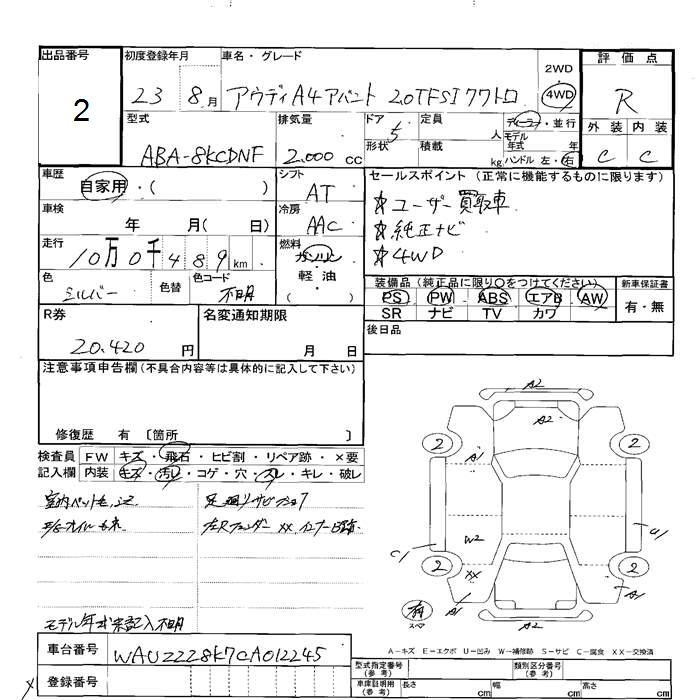 出品番号
2
初度登録年月
23 8月
車名・グレード
アウディA4アバント 2.0TFSIクワトロ
2WD
4WD
評価点
R
外装 内装
C C
型式
ABA-8KCDNF
排気量
2.000 cc
ドア 5
形状
定員 人
積載 kg
ディーラー・並行
モデル年式 年
ハンドル 左・右
車歴
自家用・( )
シフト
AT
車検
年 月( 日)
冷房
AAC
走行
10万0千489km
燃料
ガソリン
軽・油
色
シルバー
色替
色コード
不明
セールスポイント(正常に機能するものに限ります)
☆ユーザー買取車
☆純正ナビ
☆4WD
装備品(純正品に限り○をつけてください)
PS PW ABS エアB AW
SR ナビ TV カワ
新車保証書
有・無
後日品
R券
20.420 円
名変通知期限
月 日
注意事項申告欄(不具合内容等は具体的に記入して下さい)
修復歴 有 〔箇所 〕
検査員記入欄
FW キズ・飛石・ヒビ割・リペア跡・×要
内装 キズ・汚れ・コゲ・穴・スレ・キレ・破レ
モデル年式未記入不明
A2
A2
2 2
A1
W2
XX
C1
2 2
A1
有
スペア
A-キズ E-エクボ U-凹み W-補修跡 S-サビ C-腐食 XX-交換済
車台番号
WAUZZZ8K7CA012245
登録番号
型式指定番号(参考)
類別区分番号(参考)
車庫証明用(参考)
長さ cm 幅 cm 高さ cm